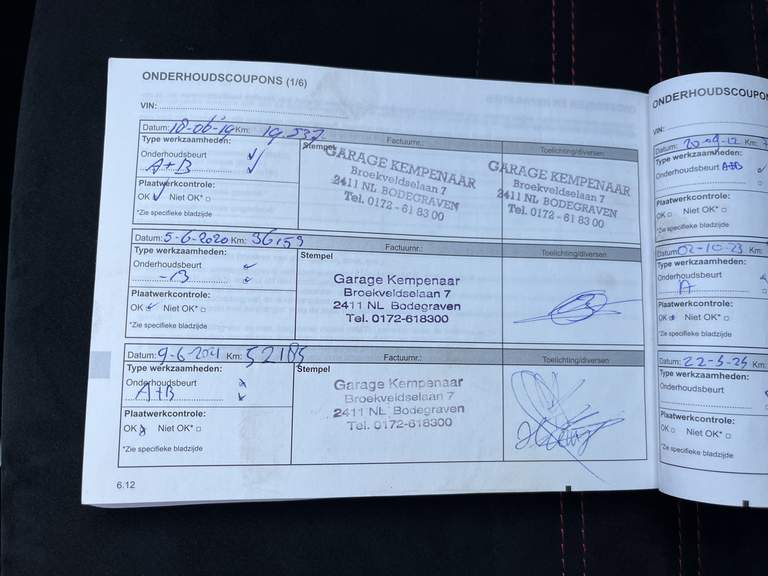 ONDERHOUDSCOUPONS (1/6)
VIN:
Datum: 18-06-19 Km: 19.537 Factuurnr.: Toelichting/diversen
Type werkzaamheden:
Onderhoudsbeurt
A+B
Plaatwerkcontrole:
OK Niet OK*
*Zie specifieke bladzijde
Stempel
GARAGE KEMPENAAR
Broekveldselaan 7
2411 NL BODEGRAVEN
Tel. 0172 - 61 83 00
GARAGE KEMPENAAR
Broekveldselaan 7
2411 NL BODEGRAVEN
Tel. 0172 - 61 83 00
Datum: 5-6-2020 Km: 36159 Factuurnr.: Toelichting/diversen
Type werkzaamheden:
Onderhoudsbeurt
B
Plaatwerkcontrole:
OK Niet OK*
*Zie specifieke bladzijde
Stempel
Garage Kempenaar
Broekveldselaan 7
2411 NL Bodegraven
Tel. 0172-618300
Datum: 9-6-2021 Km: 52185 Factuurnr.: Toelichting/diversen
Type werkzaamheden:
Onderhoudsbeurt
A+B
Plaatwerkcontrole:
OK Niet OK*
*Zie specifieke bladzijde
Stempel
Garage Kempenaar
Broekveldselaan 7
2411 NL Bodegraven
Tel. 0172-618300
6.12
ONDERHOUDSCOUPON
VIN:
Datum: Km:
Type werkzaamheden:
Onderhoudsbeurt A+B
Plaatwerkcontrole:
OK Niet OK*
*Zie specifieke bladzijde
Datum: 02-10-23 Km:
Type werkzaamheden:
Onderhoudsbeurt
A
Plaatwerkcontrole:
OK Niet OK*
*Zie specifieke bladzijde
Datum: 22-5-25 Km:
Type werkzaamheden:
Onderhoudsbeurt
Plaatwerkcontrole:
OK Niet OK*
*Zie specifieke bladzijde